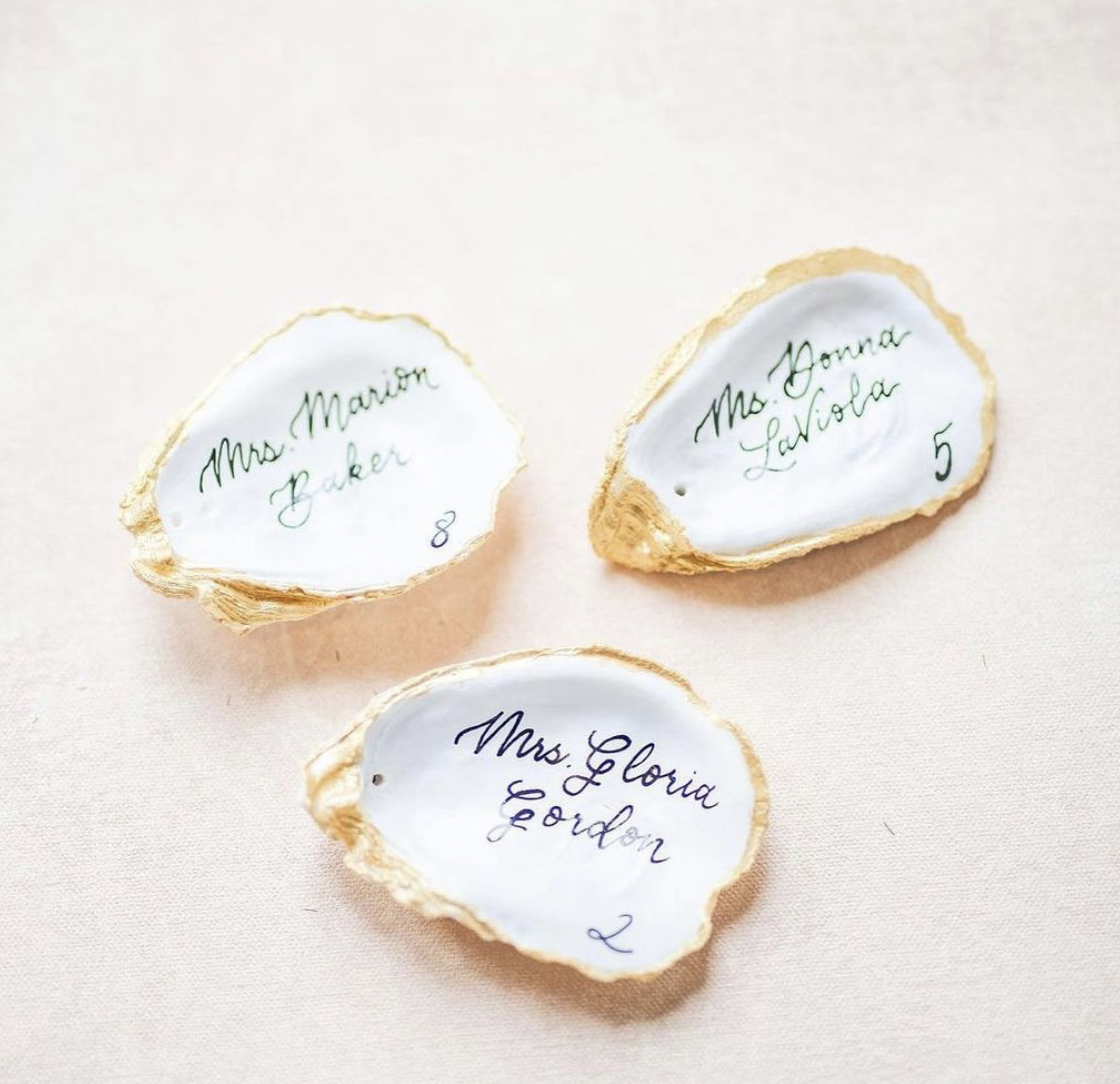 Mrs. Marion
Baker
8
Ms. Donna
LaViola
5
Mrs. Gloria
Gordon
2